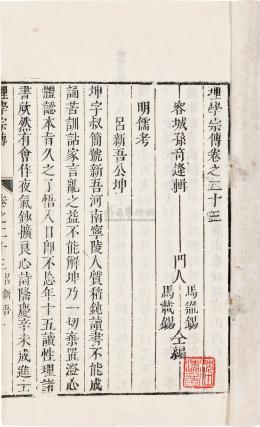 理學宗傳卷之二十三
容城孫奇逢輯
門人
馬爾錫
馬載錫
仝編
明儒考
呂新吾公坤
坤字叔簡號新吾河南寧陵人質稍鈍讀書不能成
誦苦訓詁家言亂之益不能解坤乃一切棄置澄心
體認本旨久之了悟入目即不忘年十五讀性理諸
書欣然有會作夜氣鈔擴良心詩隆慶辛未成進士
理學宗傳
卷之二十三呂新吾
一